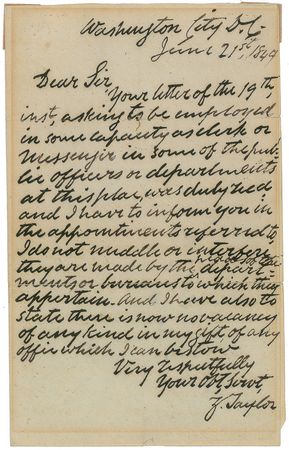 Washington City D.C.
June 21st, 1849
Dear Sir,
Your letter of the 19th,
inst, asking to be employed
in some capacity, as clerk or
Messenger in some of the pub-
lic officers or departments
at this place, was duly recd
and I have to inform you in
the appointments referred to,
I do not meddle or interfere,
they are made by the depart-
ments or bureaus to which they
appertain. And I have also to
state there is now no vacancy
of any kind in my gift, of any
office which I can bestow
Very respectfully
Your Obt, Servt,
Z. Taylor